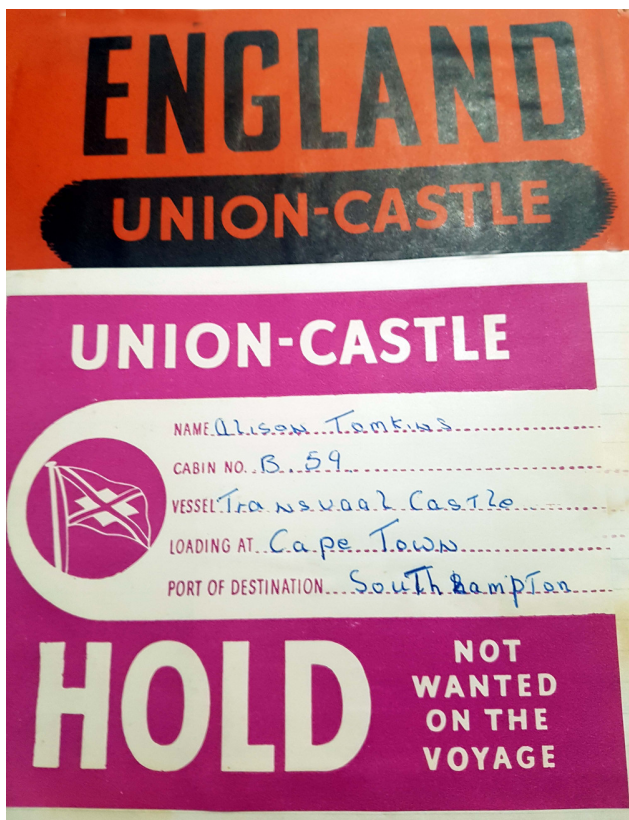 ENGLAND
UNION-CASTLE
UNION-CASTLE
NAME Alison Tomkins
CABIN NO. B. 59
VESSEL Transvaal Castle
LOADING AT Cape Town
PORT OF DESTINATION Southhampton
HOLD
NOT
WANTED
ON THE
VOYAGE